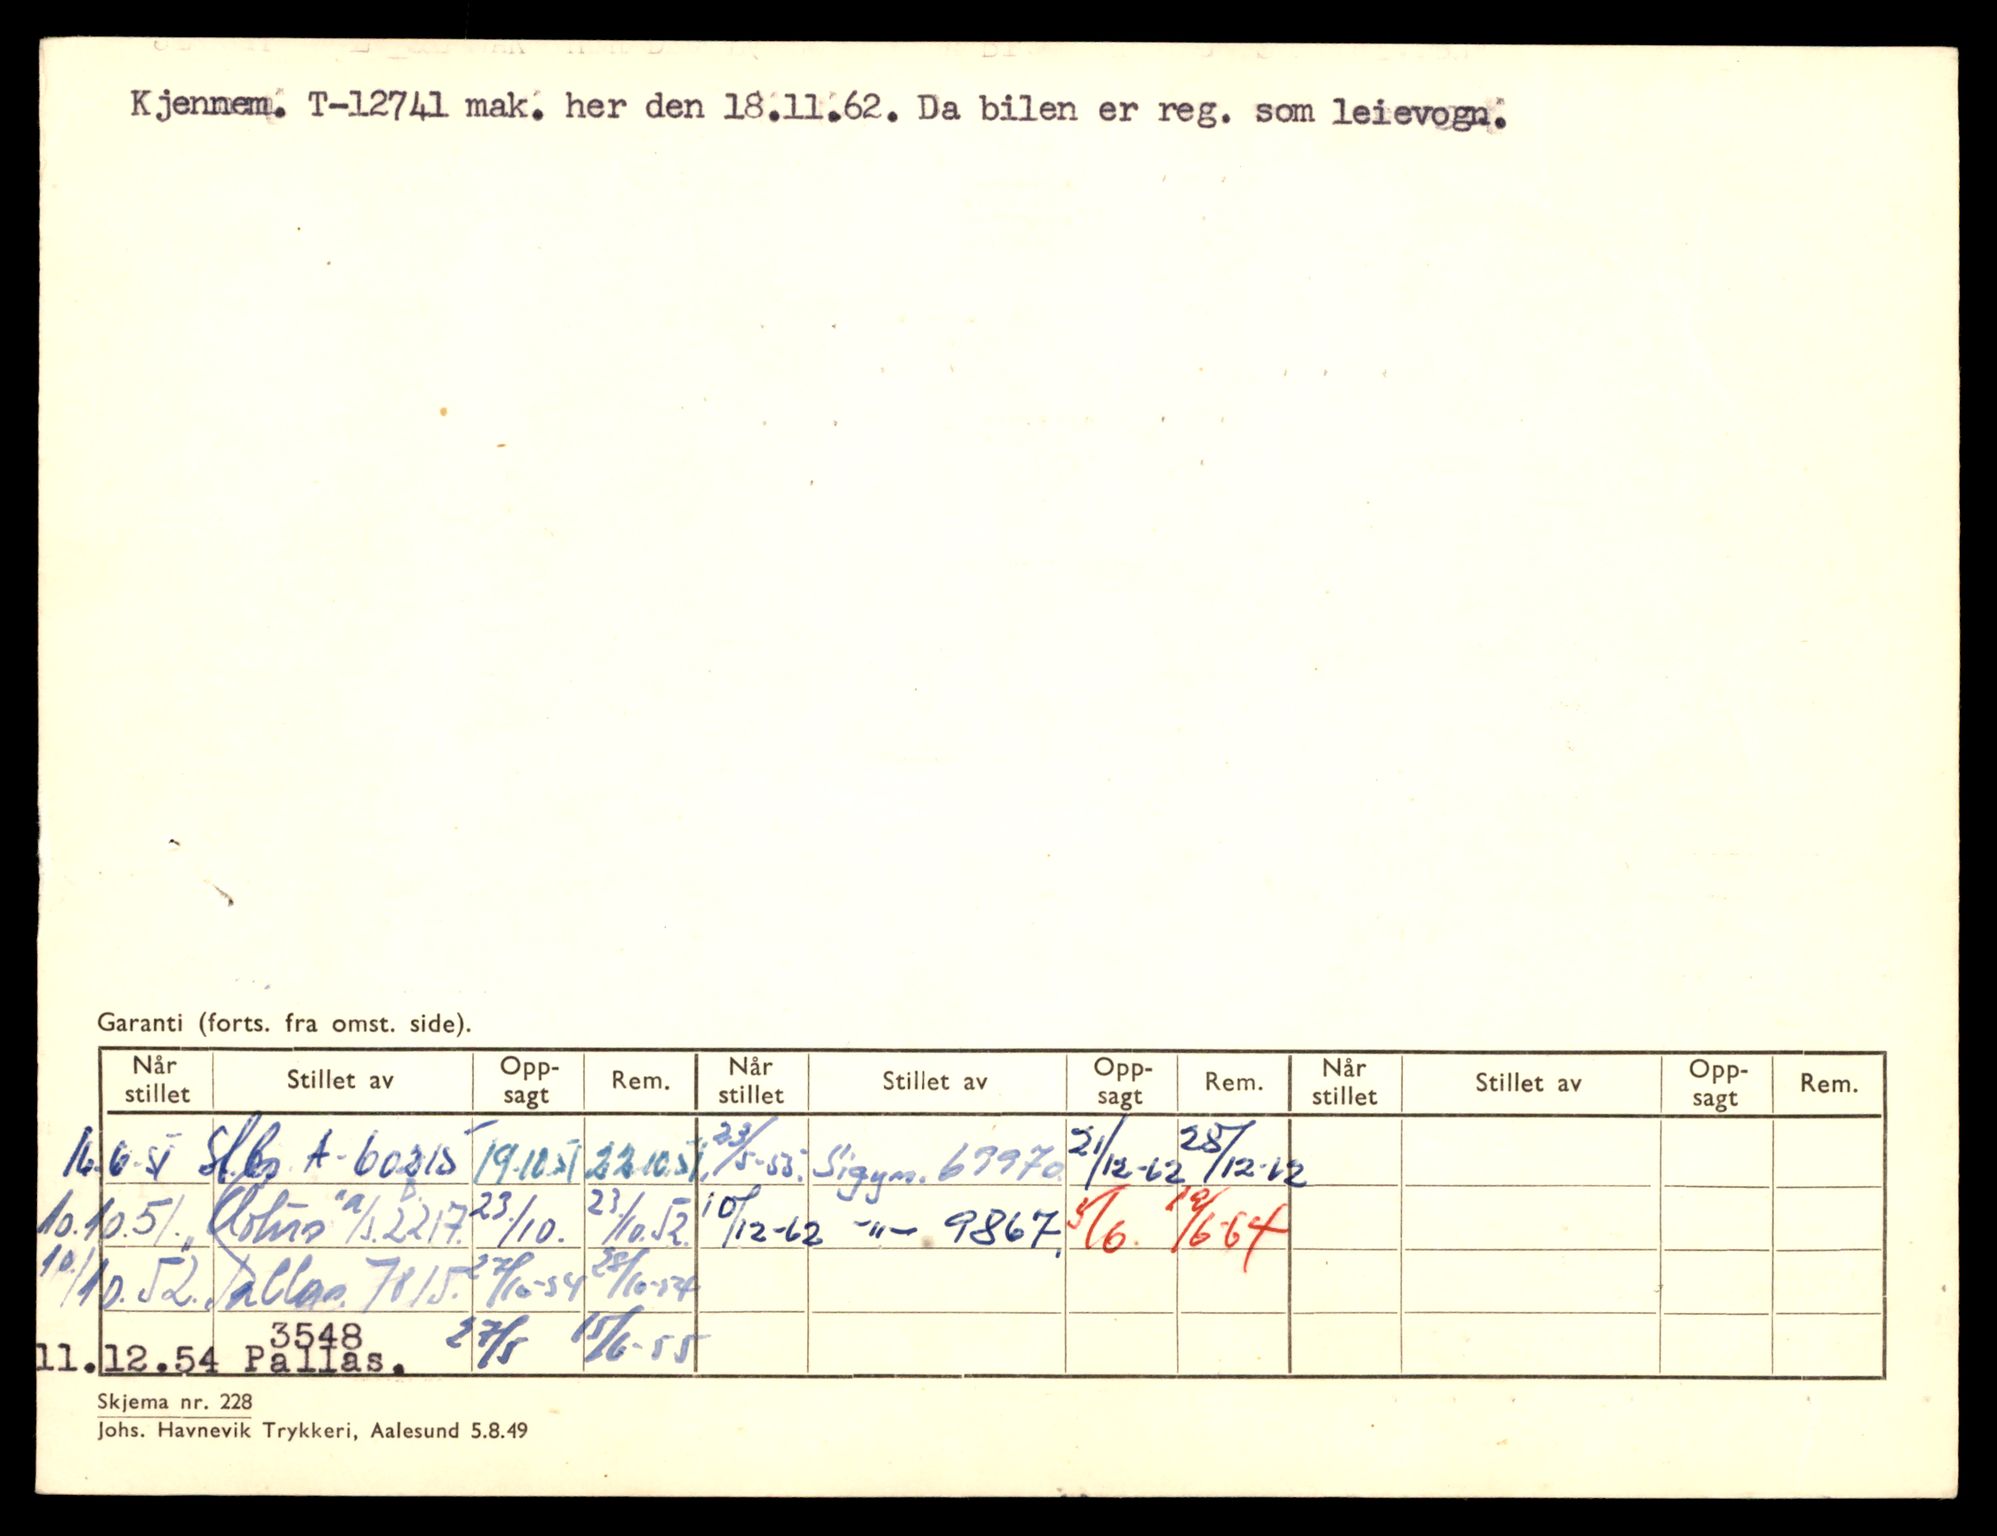 Kjennem. T-12741 mak. her den 18.11.62. Da bilen er reg. som leievogn.
Garanti (forts. fra omst. side).
Når stillet Stillet av Opp-sagt Rem. Når stillet Stillet av Opp-sagt Rem. Når stillet Stillet av Opp-sagt Rem.
A-60215 19.10.51 22.10.51 23/5-55. Sigyn. 69970 21/12-62 28/12-62
10.10.51. 2217. 23/10. 23/10.52. 10/12-62 -"- 9867. 5/6. 19/6-64
10/10.52. Pallas. 7815. 27/10-54 28/10-54
11.12.54 Pallas. 3548 27/5 15/6-55
Skjema nr. 228
Johs. Havnevik Trykkeri, Aalesund 5.8.49